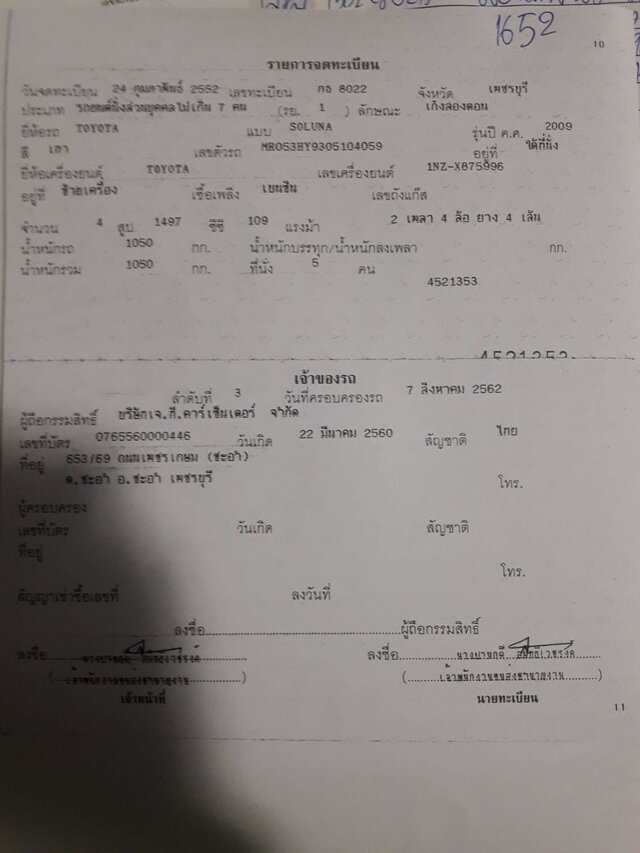 1652
10
รายการจดทะเบียน
วันจดทะเบียน 24 กุมภาพันธ์ 2552 เลขทะเบียน กธ 8022 จังหวัด เพชรบุรี
ประเภท รถยนต์นั่งส่วนบุคคลไม่เกิน 7 คน (รย. 1 ) ลักษณะ เก๋งสองตอน
ยี่ห้อรถ TOYOTA แบบ SOLUNA รุ่นปี ค.ศ. 2009
สี เทา เลขตัวรถ MR053HY9305104059 อยู่ที่ ใต้ที่นั่ง
ยี่ห้อเครื่องยนต์ TOYOTA เลขเครื่องยนต์ 1NZ-X875996
อยู่ที่ ซ้ายเครื่อง เชื้อเพลิง เบนซิน เลขถังแก๊ส
จำนวน 4 สูบ 1497 ซีซี 109 แรงม้า 2 เพลา 4 ล้อ ยาง 4 เส้น
น้ำหนักรถ 1050 กก. น้ำหนักบรรทุก/น้ำหนักลงเพลา กก.
น้ำหนักรวม 1050 กก. ที่นั่ง 5 คน
4521353
เจ้าของรถ
ลำดับที่ 3 วันที่ครอบครองรถ 7 สิงหาคม 2562
ผู้ถือกรรมสิทธิ์ บริษัทเจ.ที.คาร์เซ็นเตอร์ จำกัด
เลขที่บัตร 0765560000446 วันเกิด 22 มีนาคม 2560 สัญชาติ ไทย
ที่อยู่ 653/69 ถนนเพชรเกษม (ชะอำ)
ต.ชะอำ อ.ชะอำ เพชรบุรี โทร.
ผู้ครอบครอง
เลขที่บัตร วันเกิด สัญชาติ
ที่อยู่
โทร.
สัญญาเช่าซื้อเลขที่ ลงวันที่
ลงชื่อ ผู้ถือกรรมสิทธิ์
ลงชื่อ ลงชื่อ
(เจ้าพนักงานขนส่งชำนาญงาน) (เจ้าพนักงานขนส่งชำนาญงาน)
เจ้าหน้าที่ นายทะเบียน
11